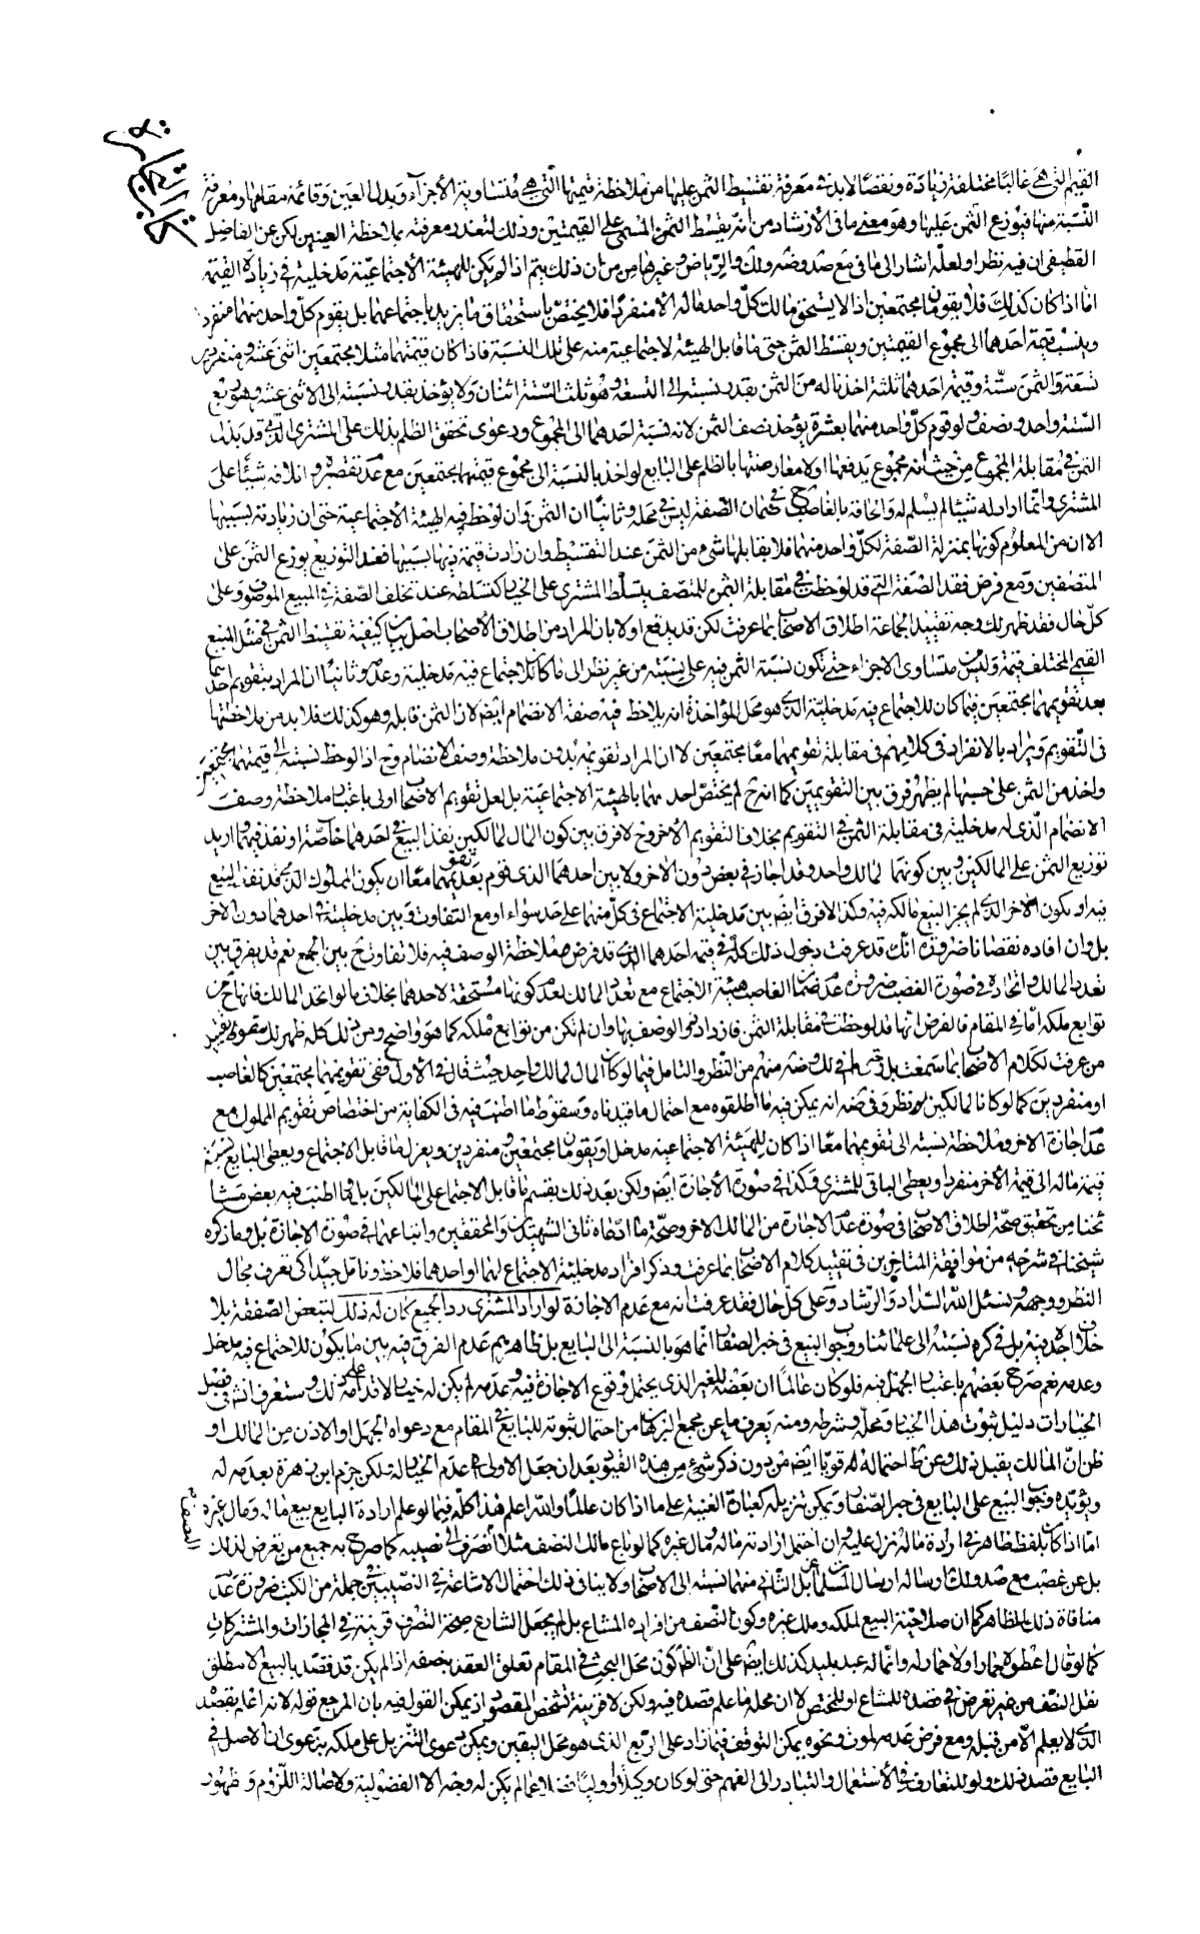 القيم التى هى غالبا مختلفة زيادة ونقصا لا بد فى معرفة تقسيط الثمن عليها من ملاحظة قيمتها التى هى متساوية الأجزاء وبدل العين وقائمة مقامها ومعرفة
النسبة منها فيوزع الثمن عليها وهو معنى ما فى الأرشاد من انه يقسط الثمن المسمى على القيمتين وذلك لتعذر معرفته بملاحظة العينين لكن عن الفاضل
القطيفى ان فيه نظرا ولعله اشار الى ما فى مع صد وضه ولك والرياض وغيرها من ان ذلك يتم اذا لم يكن للهيئة الأجتماعية مدخلية فى زيادة القيمة
اما اذا كان كذلك فلا يقومان مجتمعين اذ لا يستحق مالك كل واحد ماله الا منفردا فلا يختص باستحقاق ما يزيد باجتماعهما بل يقوم كل واحد منهما منفردا
وينسب قيمة احدهما الى مجموع القيمتين ويقسط الثمن حتى ما قابل الهيئة الاجتماعية منه على تلك النسبة فاذا كان قيمتهما مثلا مجتمعين اثنى عشر ومنفردين
تسعة والثمن ستة وقيمة احدهما ثلثة اخذ ماله من الثمن بقدر نسبته الى التسعة وهو ثلث الستة اثنان ولا يؤخذ بقدر نسبته الى الاثنى عشر وهو ربع
الستة واحد ونصف ولو قوم كل واحد منهما بعشرة يؤخذ نصف الثمن لانه نسبة احدهما الى المجموع ودعوى تحقق الظلم بذلك على المشترى الذى قد بذل
الثمن فى مقابلة المجموع من حيث انه مجموع يدفعها اولا معارضتها بالظلم على البايع لو اخذ بالنسبة الى مجموع قيمتهما مجتمعين مع عدم تقصيره واتلافه شيئا على
المشترى وانما اراد له شيئا لم يسلم له والحاقه بالغاصب ح فى ضمان الصفة ليس فى محله وثانيا ان الثمن وان لوحظ فيه الهيئة الأجتماعية حتى ان زيادته بسببها
الا ان من المعلوم كونها بمنزلة الصفة لكل واحد منهما فلا يقابلها شىء من الثمن عند التقسيط وان زادت قيمة ذيها بسببها فعند التوزيع يوزع الثمن على
المتصفين ومع فرض فقد الصفة التى قد لوحظت فى مقابلة الثمن للمتصف يتسلط المشترى على الخيار كتسلطه عند تخلف الصفة فى المبيع الموصوف وعلى
كل حال فقد ظهر لك وجه تقييد الجماعة اطلاق الاصحاب بما عرفت لكن قد يدفع اولا بان المراد من اطلاق الأصحاب اصل بيان كيفية تقسيط الثمن فى مثل المبيع
القيمى المختلف قيمة وليس متساوى الاجزاء حتى تكون نسبة الثمن فيه على نسبته من غير نظر الى ما كان للاجتماع فيه مدخلية وعدمه وثانيا ان المراد بتقويم احدهما
بعد تقويمهما مجتمعين فيما كان للاجتماع فيه مدخلية الذى هو محل المؤاخذة انه يلاحظ فيه صفة الانضمام ايضا لان الثمن قابله وهو كذلك فلا بد من ملاحظتها
فى التقويم ويراد بالانفراد فى كلامهم فى مقابلة تقويمهما معا مجتمعين لا ان المراد تقويمه بدون ملاحظة وصف الانضمام وح اذا لوحظ نسبته الى قيمتهما مجتمعين
واخذ من الثمن على حسبها لم يظهر فرق بين التقويمين كما انه ح لم يختص احد منهما بالهيئة الاجتماعية بل لعل تقويم الاصحاب اولى باعتبار ملاحظة وصف
الانضمام الذى له مدخلية فى مقابلة الثمن فى التقويم بخلاف التقويم الأخر وح لا فرق بين كون المال لمالكين نفذ البيع فى احدهما خاصة او نفذ فيهما واريد
توزيع الثمن على المالكين وبين كونهما لمالك واحد وقد اجاز فى بعض دون الأخر ولا بين احدهما الذى يقوم بعد تقويمهما معا ان يكون المملوك الذى قد نفذ البيع
فيه او يكون الأخر الذى لم يجز البيع مالكه فيه وكذا لا فرق ايضا بين مدخلية الاجتماع فى كل منهما على حد سواء او مع التفاوت وبين مدخليته فى احدهما دون الاخر
بل وان افاده نقصانا ضرورة انك قد عرفت دخول ذلك كله فى قيمة احدهما الذى قد فرض ملاحظة الوصف فيه فلا تفاوت ح بين الجمع نعم قد يفرق بين
تعدد المالك واتحاده فى صورة الغصب ضرورة عدم ضمان الغاصب هيئة الاجتماع مع تعدد المالك لعدم كونها مستحقة لاحدهما بخلاف ما لو اتحد المالك فانها ح من
توابع ملكه اما فى المقام فالفرض انها قد لوحظت فى مقابلة الثمن فازداد ذو الوصف بها وان لم تكن من توابع ملكه كما هو واضح ومن ذلك كله ظهر لك سقوط تقييد
من عرفت لكلام الاصحاب بما سمعت بل فى لك وضه منهم من النظر والتامل فيما لو كان المال لمالك واحد حيث قال فى الأول ففى تقويمهما مجتمعين كالغاصب
او منفردين كما لو كانا لمالكين نظر وفى ضه انه يمكن فيه ما اطلقوه مع احتمال ما قيدناه وسقوط ما اطنب فيه فى الكفاية من اختصاص تقويم المملوك مع
عدم اجازة الاخر وملاحظة نسبته الى تقويمهما معا اذا كان للهيئة الاجتماعية مدخل او يقومان مجتمعين ومنفردين ويعزل ما قابل الاجتماع ويعطى البايع نسبة
قيمة ماله الى قيمة الأخر منفردا ويعطى الباقى للمشترى وكذا فى صورة الأجازة ايضا ولكن بعد ذلك يقسم ما قابل الاجتماع على المالكين بل وما اطنب فيه بعض مشا
ئخنا من تحقيق صحة اطلاق الاصحاب فى صورة عدم الاجازة من المالك الاخر وصحة ما ادعاه ثانى الشهيدين والمحققين واتباعهما فى صورة الاجازة بل وما ذكره
شيخنا فى شرحه من موافقة المتاخرين فى تقييد كلام الاصحاب بما عرفت وذكر افراد مدخلية الاجتماع لهما او احدهما فلاحظ وتامل جيدا كى تعرف مجال
النظر ووجهه ونسئل الله السداد والرشاد وعلى كل حال فقد عرفت انه مع عدم الاجازة لو اراد المشترى رد الجميع كان له ذلك لتبعض الصفقة بلا
خلاف اجده فيه بل فى كره نسبته الى علمائنا ووجوب البيع فى خبر الصفار انما هو بالنسبة الى البايع بل ظاهرهم عدم الفرق فيه بين ما يكون للاجتماع فيه مدخل
وعدمه نعم صرح بعضهم باعتبار الجهل فيه فلو كان عالما ان بعضه للغير الذى يحتمل وقوع الاجازة فيه وعدمه لم يكن له خيار لاقدامه على ذلك وستعرف انش فى فصل
الخيارات دليل ثبوت هذا الخيار ومحله وشرطه ومنه يعرف ما عن مجمع البرهان من احتمال ثبوته للبايع فى المقام مع دعواه الجهل او الاذن من المالك او
ظن ان المالك يقبل ذلك وعن ط احتماله له قويا ايضا من دون ذكر شىء من هذه القيود بعد ان جعل الاولى عدم الخيار له ولكن جزم ابن زهرة بعدمه له
ويؤيده وجوب البيع على البايع فى خبر الصفار ويمكن تنزيله كعبارة الغنية على ما اذا كان عالما والله اعلم هذا كله فيما لو علم ارادة البايع بيع ماله ومال غيره
اما اذا كان بلفظ ظاهر فى ارادة ماله نزل عليه وان احتمل ارادته ماله ومال غيره كما لو باع مالك النصف مثلا انصرف الى نصيبه كما صرح به جميع من تعرض لذلك
بل عن غصب مع صد ولك ارساله ارسال المسلمات بل عن الثانى منهما نسبته الى الاصحاب ولا ينافى ذلك احتمال الاشاعة فى النصيبين فى جملة من الكتب ضرورة عدم
منافاة ذلك للظاهر كما ان صلاحية المبيع لملكه وملك غيره وكون النصف من افراده المشاع بل لم يجعل الشارع صحة التصرف قرينة فى المجازات والمشتركات
كما لو قال اعطوه حمارا ولا حمار له وانما له عبد بليد كذلك ايضا على ان الظ كون محل البحث فى المقام تعلق العقد بنصفه اذا لم يكن قد قصد بالبيع الا مطلق
نقل النصف من غير تعرض فى قصده للمشاع او للمختص لا ان محله ما علم قصده فيه ولكن لا قرينة تشخص المقصود اذ يمكن القول فيه بان المرجع قوله لانه اعلم بقصده
الذى لا يعلم الا من قبله ومع فرض عدمه لموت ونحوه يمكن التوقف فيما زاد على الربع الذى هو محل اليقين ويمكن دعوى التنزيل على ملكه بدعوى ان الاصل فى
البايع قصد ذلك ولو للتعارف فى الأستعمال والتبادر الى الفهم حتى لو كان وكيلا او وليا لم يكن له وجه الا الفضولية ولاصالة اللزوم وظهور
الصفار